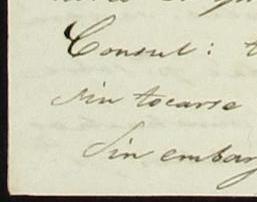 Consul: t
sin tocarse
Sin embarg